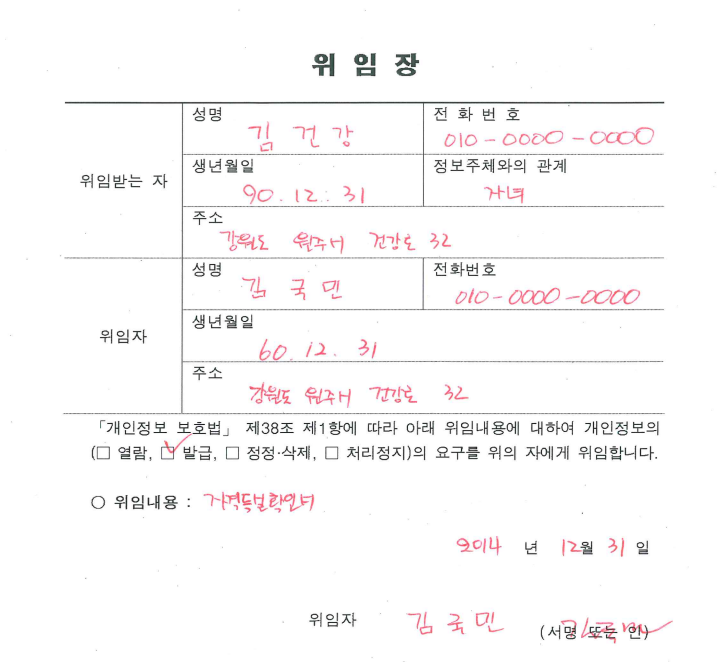 위 임 장
위임받는 자
성명
김 건 강
전 화 번 호
010-0000-0000
생년월일
90. 12. 31
정보주체와의 관계
자녀
주소
강원도 원주시 건강로 32
위임자
성명
김 국 민
전화번호
010-0000-0000
생년월일
60. 12. 31
주소
강원도 원주시 건강로 32
「개인정보 보호법」 제38조 제1항에 따라 아래 위임내용에 대하여 개인정보의
(□ 열람, ☑ 발급, □ 정정·삭제, □ 처리정지)의 요구를 위의 자에게 위임합니다.
○ 위임내용 : 자격득실확인서
2014 년 12월 31 일
위임자 김 국 민 (서명 또는 인) 김국민